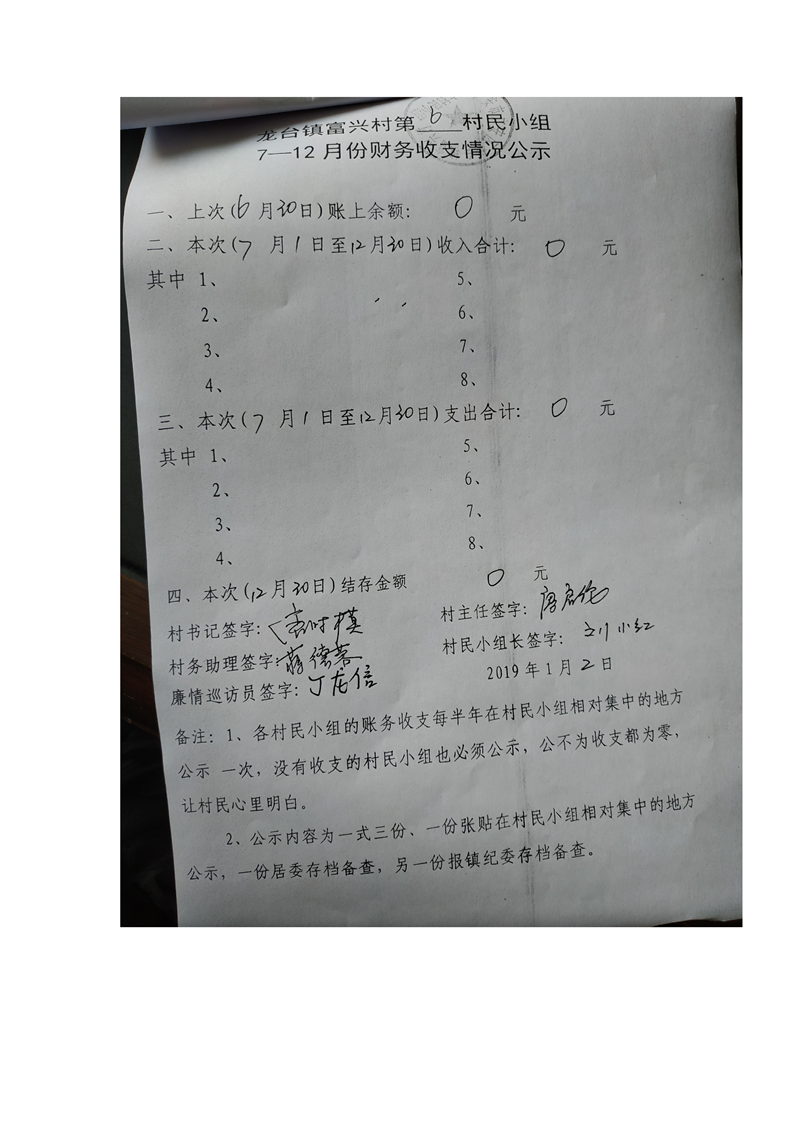 龙台镇富兴村第6村民小组
7—12月份财务收支情况公示
一、上次(6月30日)账上余额： 0 元
二、本次(7月1日至12月30日)收入合计： 0 元
其中 1、 5、
2、 6、
3、 7、
4、 8、
三、本次(7月1日至12月30日)支出合计： 0 元
其中 1、 5、
2、 6、
3、 7、
4、 8、
四、本次(12月30日)结存金额 0 元
村书记签字： 村主任签字：
村务助理签字： 村民小组长签字：刘小红
廉情巡访员签字：丁龙信 2019年1月2日
备注：1、各村民小组的账务收支每半年在村民小组相对集中的地方
公示 一次，没有收支的村民小组也必须公示，公不为收支都为零，
让村民心里明白。
2、公示内容为一式三份、一份张贴在村民小组相对集中的地方
公示，一份居委存档备查，另一份报镇纪委存档备查。